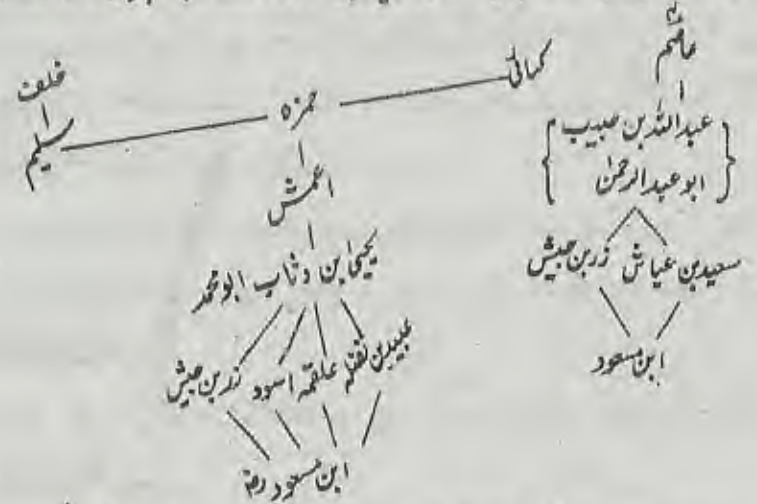 عاصم
عبداللہ بن حبیب
ابو عبدالرحمٰن
سعید بن عیاش زر بن حبیش
ابن مسعود
کسائی
حمزہ
خلف
سلیم
اعمش
یحییٰ ابن وثاب ابو محمد
عبید بن نضلہ علقمہ اسود زر بن حبیش
ابن مسعود رضہ